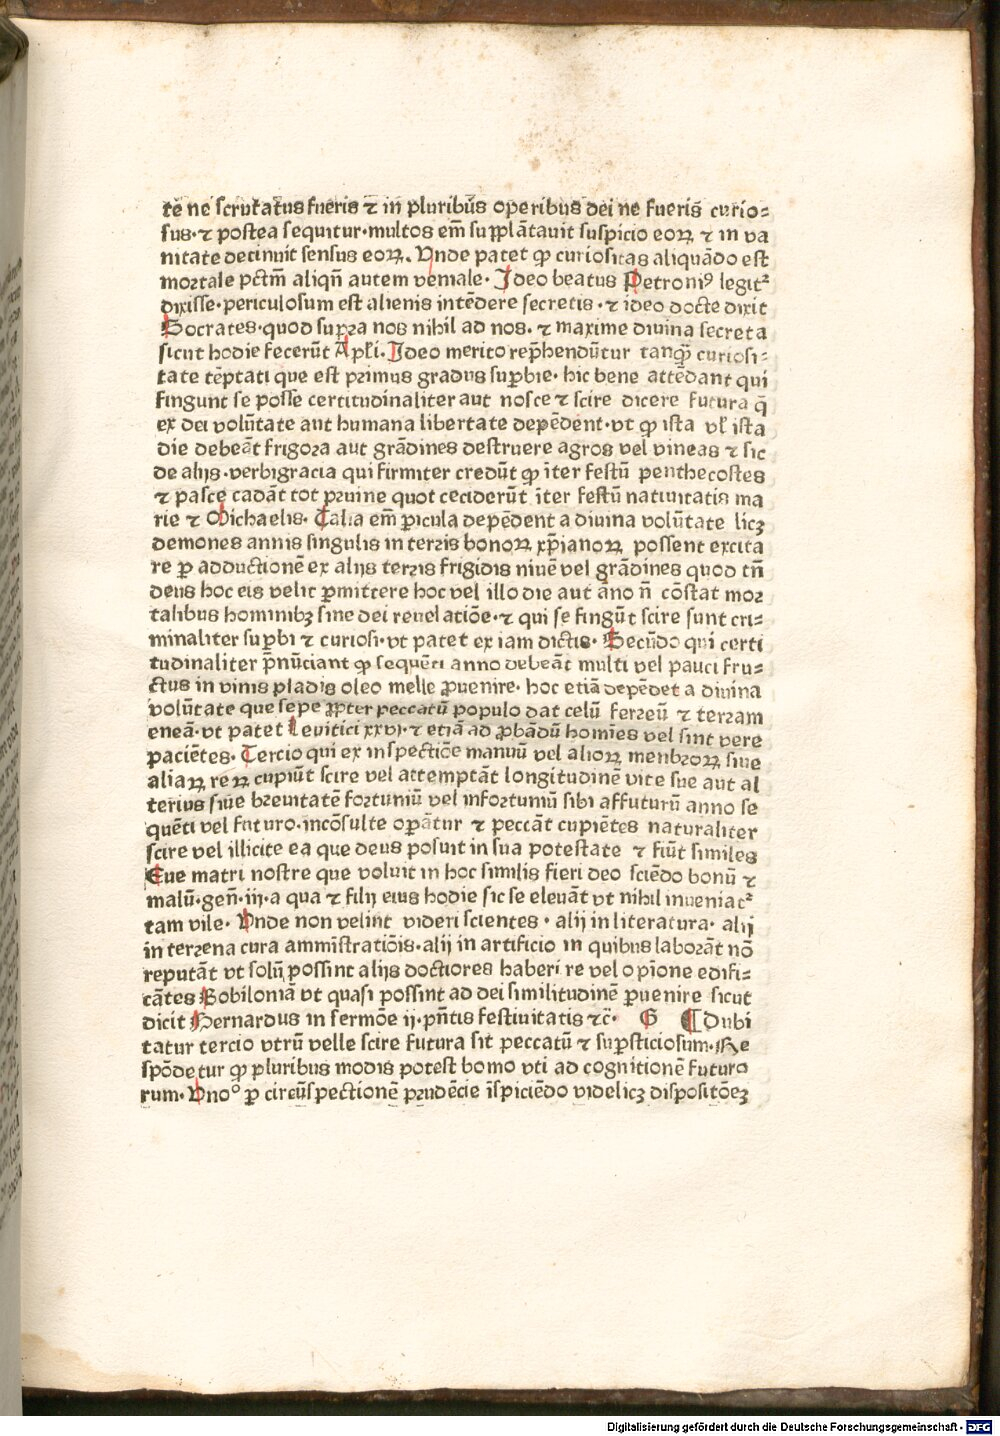 tē ne scrutat̄us fueris ⁊ in pluribus̄ operibus dei ne fueris̄ curio⸗
sus·⁊ postea sequitur·multos em̄ supplātauit suspicio eoꝝ ⁊ in va
nitate decinuit sensus eoꝝ. Unde patet ꝙ curiositas aliquādo est
moꝛtale pctm̄ aliqn̄ autem veniale· Ideo beatus Petroniꝰ legit᷑
dixisse·periculosum est alienis intēdere secretis·⁊ ideo docte dixit
Socrates·quod supꝛa nos nihil ad nos·⁊ maxime diuina secreta
sicut hodie fecerūt Apl̄i·Ideo merito rep̄hendūtur tanqᷓ curiosi⸗
tate tēptati que est pꝛimus gradus suꝑbie· hic bene attēdant qui
fingunt se posse certitudinaliter aut nosce ⁊ scire dicere futura q̄
ex dei volūtate aut humana libertate depēdent·vt ꝙ ista vl̓ ista
die debeāt frigora aut grādines destruere agros vel vineas ⁊ sic
de alijs·verbigracia qui firmiter credūt ꝙ īter festū penthecostes
⁊ pasce cadāt tot pꝛuine quot ceciderūt īter festū natiuitatis ma
rie ⁊ Michaelis· Talia em̄ ꝑicula depēdent a diuina volūtate licꝫ
demones annis singulis in terꝛis bonoꝝ xp̄ianoꝝ possent excita
re ꝑ adductionē ex alijs terꝛis frigidis niuē vel grādines quod tn̄
deus hoc eis velit ꝑmittere hoc vel illo die aut āno n̄ cōstat moꝛ
talibus hominibꝫ sine dei reuelatiōe·⁊ qui se fingūt scire sunt cri⸗
minaliter suꝑbi ⁊ curiosi·vt patet ex iam dictis· Secūdo qui certi
tudinaliter p̄nūciant ꝙ sequēti anno debeāt multi vel pauci fru⸗
ctus in vinis pladis oleo melle ꝓuenire· hoc etiā depēdet a diuina
volūtate que sepe ꝓpter peccatū populo dat celū ferreū ⁊ terꝛam
eneā·vt patet Leuitici xxvj·⁊ etiā ad ꝓbādū homīes vel sint vere
paciētes· Tercio qui ex inspectiōe manuū vel alioꝝ menbꝛoꝝ siue
aliaꝝ reꝝ cupiūt scire vel attemptāt longitudinē vite sue aut al
terius siue bꝛeuitatē foꝛtuniū vel infoꝛtuniū sibi affuturū anno se
quēti vel futuro·incōsulte oꝑātur ⁊ peccāt cupiētes naturaliter
scire vel illicite ea que deus posuit in sua potestate ⁊ fiūt similes
Eue matri nostre que voluit in hoc similis fieri deo sciēdo bonū ⁊
malū·gen̄·iij·a qua ⁊ filij eius hodie sic se eleuāt vt nihil inueniac᷑
tam vile· Unde non velint videri scientes·alij in literatura·alij
in terꝛena cura ammīstratiōis·alij in artificio in quibus laborāt nō
reputāt vt solū possint alijs doctiores haberi re vel opīone edifi⸗
cātes Bobiloniā vt quasi possint ad dei similitudinē ꝑuenire sicut
dicit Bernardus in sermōe ij·pn̄tis festiuitatis ⁊c̄· G ¶ Dubi
tatur tercio vtrū velle scire futura sit peccatū ⁊ suꝑsticiosum·Re
spōdetur ꝙ pluribus modis potest homo vti ad cognitionē futuro
rum·Unoº ꝑ circūspectionē pꝛudēcie īspiciēdo videlicꝫ dispositōeꝫ
Digitalisierung gefördert durch die Deutsche Forschungsgemeinschaft · DFG